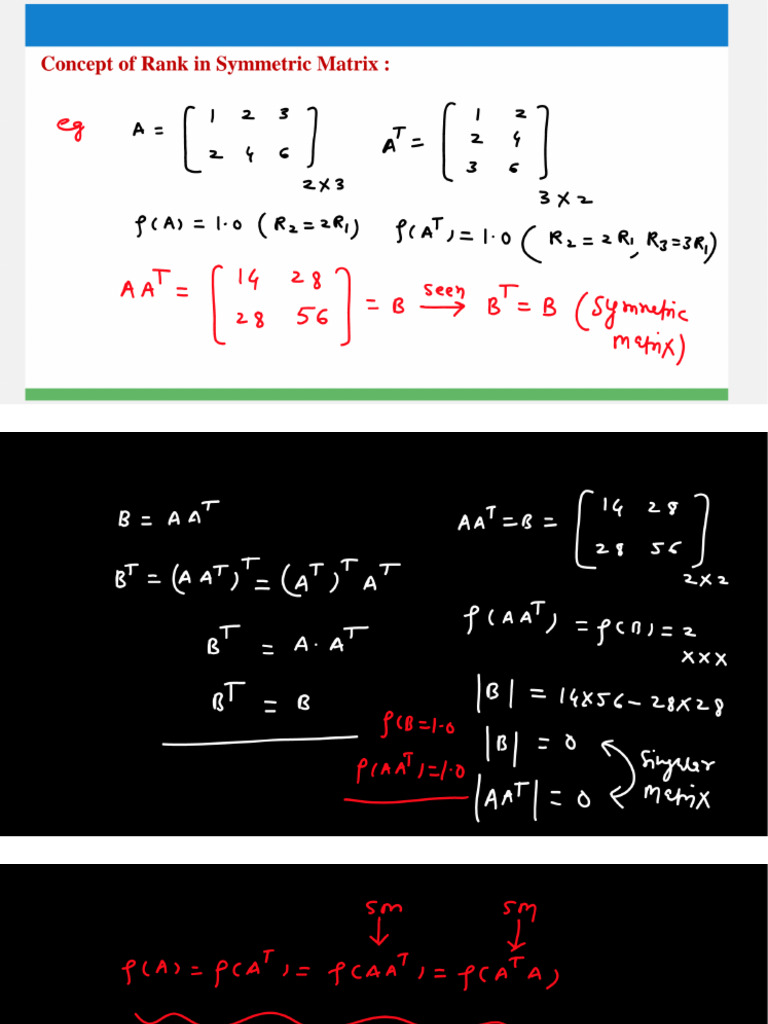 Concept of Rank in Symmetric Matrix :
eg A = [ 1 2 3 ; 2 4 6 ] 2×3 Aᵀ = [ 1 2 ; 2 4 ; 3 6 ] 3×2
ρ(A) = 1.0 (R₂ = 2R₁) ρ(Aᵀ) = 1.0 (R₂ = 2R₁, R₃ = 3R₁)
AAᵀ = [ 14 28 ; 28 56 ] = B seen → Bᵀ = B (Symmetric matrix)
B = AAᵀ
Bᵀ = (AAᵀ)ᵀ = (Aᵀ)ᵀ Aᵀ
Bᵀ = A · Aᵀ
Bᵀ = B
AAᵀ = B = [ 14 28 ; 28 56 ] 2×2
ρ(AAᵀ) = ρ(B) = 2
×××
|B| = 14×56 − 28×28
|B| = 0
|AAᵀ| = 0
Singular
matrix
ρ(B = 1.0
ρ(AAᵀ) = 1.0
sm sm
↓ ↓
ρ(A) = ρ(Aᵀ) = ρ(AAᵀ) = ρ(AᵀA)